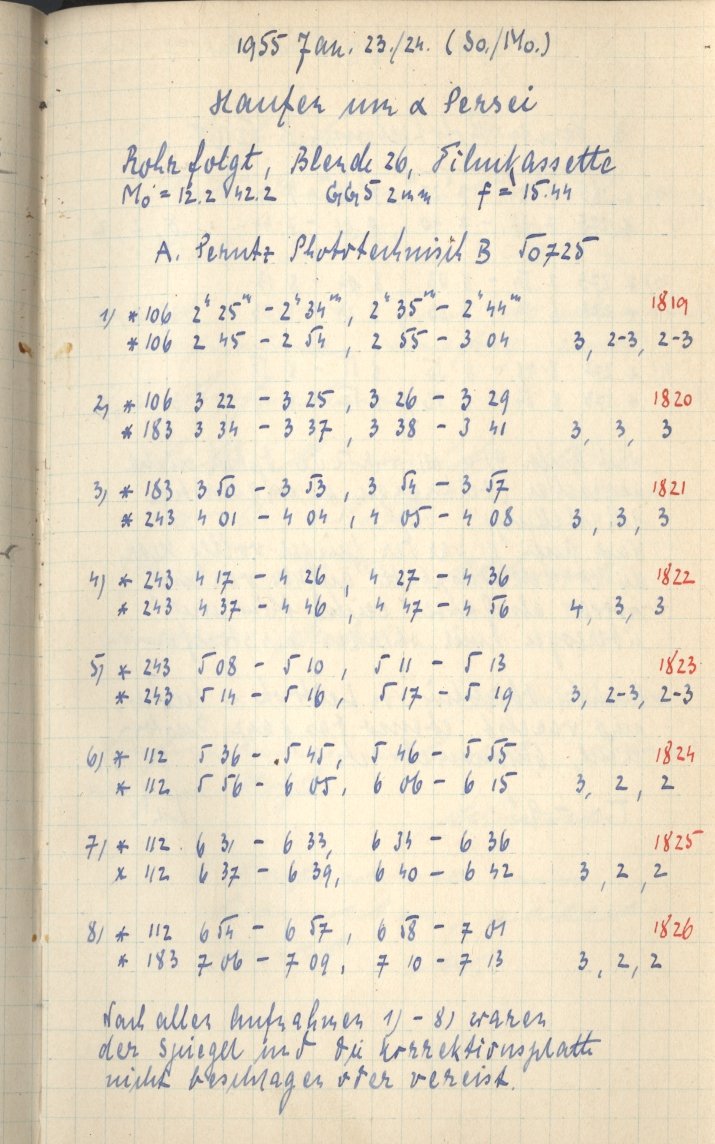 1955 Jan. 23./24. (So./Mo.)
Haufen um α Persei
Rohr folgt, Blende 26, Filmkassette
Mo = 12.2 42.2 GG5 2mm f = 15.44
A. Perutz Phototechnisch B 50725
1) * 106 2ʰ 25ᵐ - 2ʰ 34ᵐ, 2ʰ 35ᵐ - 2ʰ 44ᵐ 1819
* 106 2 45 - 2 54, 2 55 - 3 04 3, 2-3, 2-3
2) * 106 3 22 - 3 25, 3 26 - 3 29 1820
* 183 3 34 - 3 37, 3 38 - 3 41 3, 3, 3
3) * 183 3 50 - 3 53, 3 54 - 3 57 1821
* 243 4 01 - 4 04, 4 05 - 4 08 3, 3, 3
4) * 243 4 17 - 4 26, 4 27 - 4 36 1822
* 243 4 37 - 4 46, 4 47 - 4 56 4, 3, 3
5) * 243 5 08 - 5 10, 5 11 - 5 13 1823
* 243 5 14 - 5 16, 5 17 - 5 19 3, 2-3, 2-3
6) * 112 5 36 - 5 45, 5 46 - 5 55 1824
* 112 5 56 - 6 05, 6 06 - 6 15 3, 2, 2
7) * 112 6 31 - 6 33, 6 34 - 6 36 1825
* 112 6 37 - 6 39, 6 40 - 6 42 3, 2, 2
8) * 112 6 54 - 6 57, 6 58 - 7 01 1826
* 183 7 06 - 7 09, 7 10 - 7 13 3, 2, 2
Nach allen Aufnahmen 1) - 8) waren
der Spiegel und die Korrektionsplatte
nicht beschlagen oder vereist.